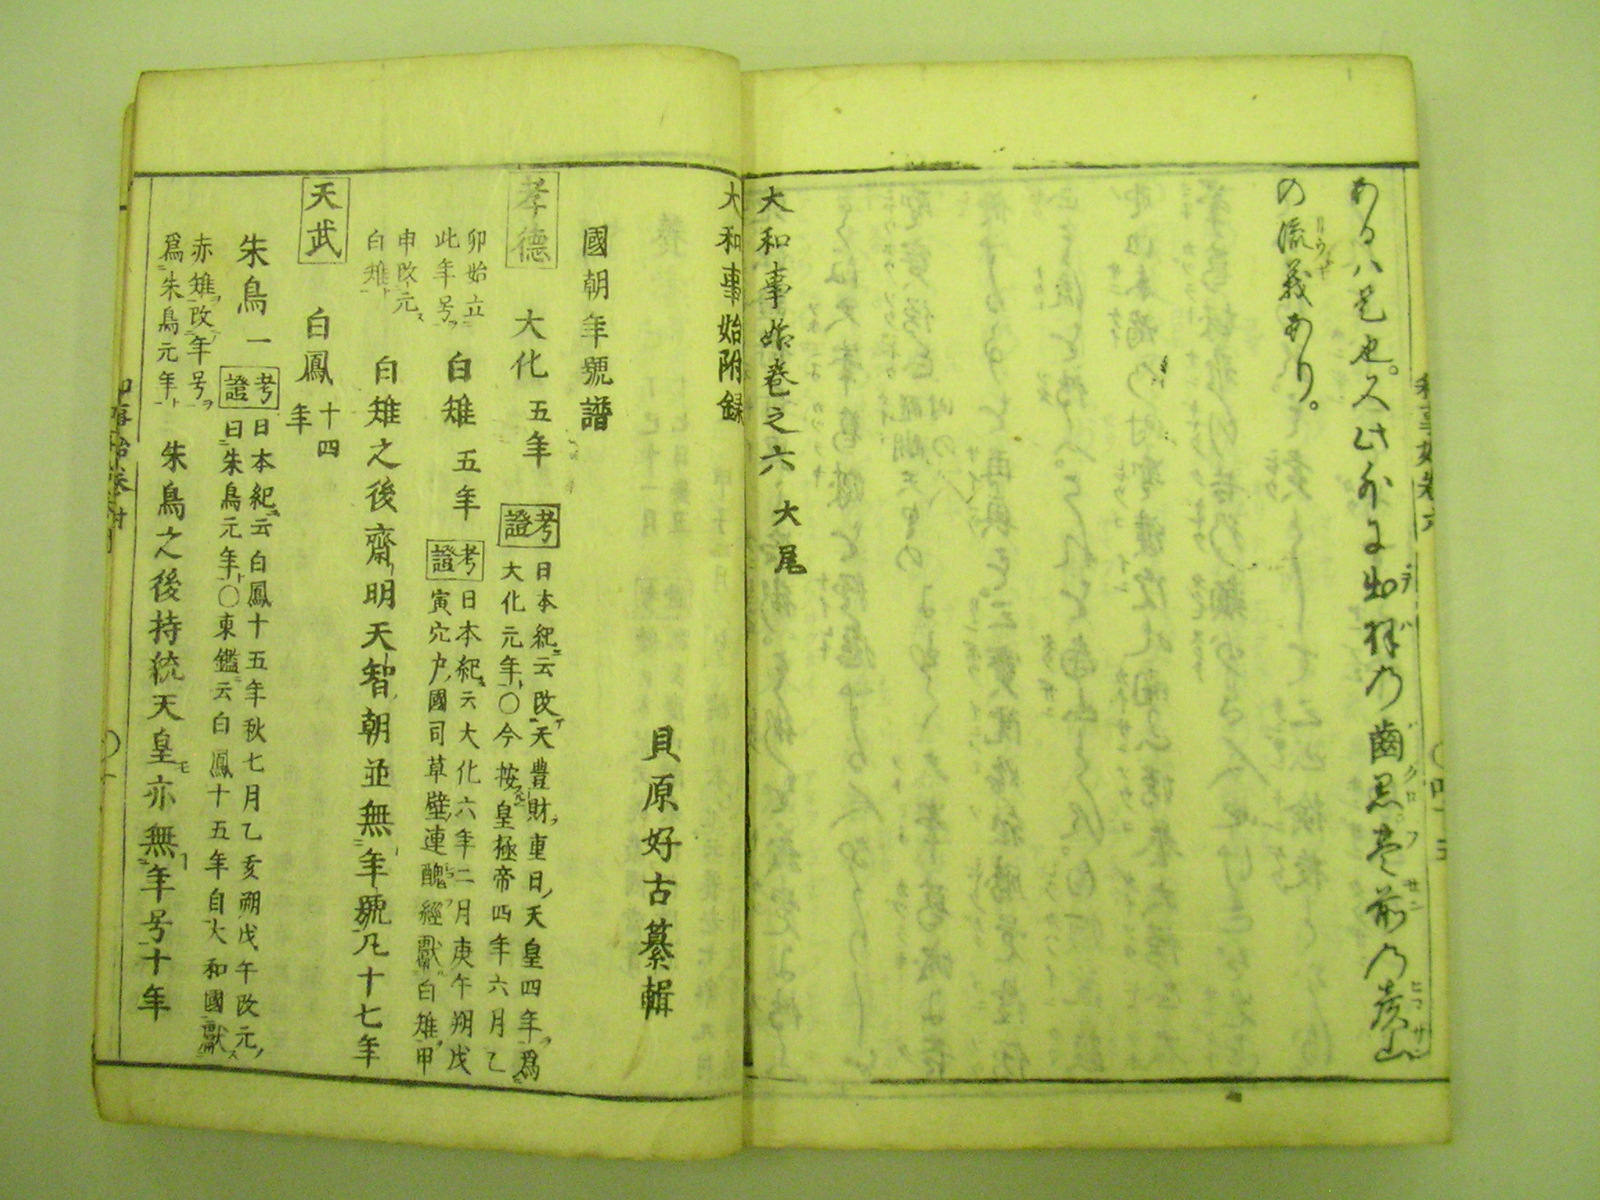 ある八是也。又此外に出羽の齒黒、豊前の彦山
の流義あり。
大和事始巻之六 大尾
大和事始附録
貝原好古纂輯
國朝年號譜
孝德 大化 五年 考證 日本紀云改天豊財重日天皇四年爲
大化元年〇今按皇極帝四年六月乙
卯始立
此年号 白雉 五年 考證 日本紀云大化六年二月庚午朔戊
寅穴戸國司草壁連醜經獻白雉甲
申改元
白雉 白雉之後齋明天智朝並無年號凡十七年
天武 白鳳 十四年
朱鳥 一 考證 日本紀云白鳳十五年秋七月乙亥朔戊午改元
曰朱鳥元年〇東鑑云白鳳十五年自大和國獻
赤雉改年号
爲朱鳥元年 朱鳥之後持統天皇亦無年号十年